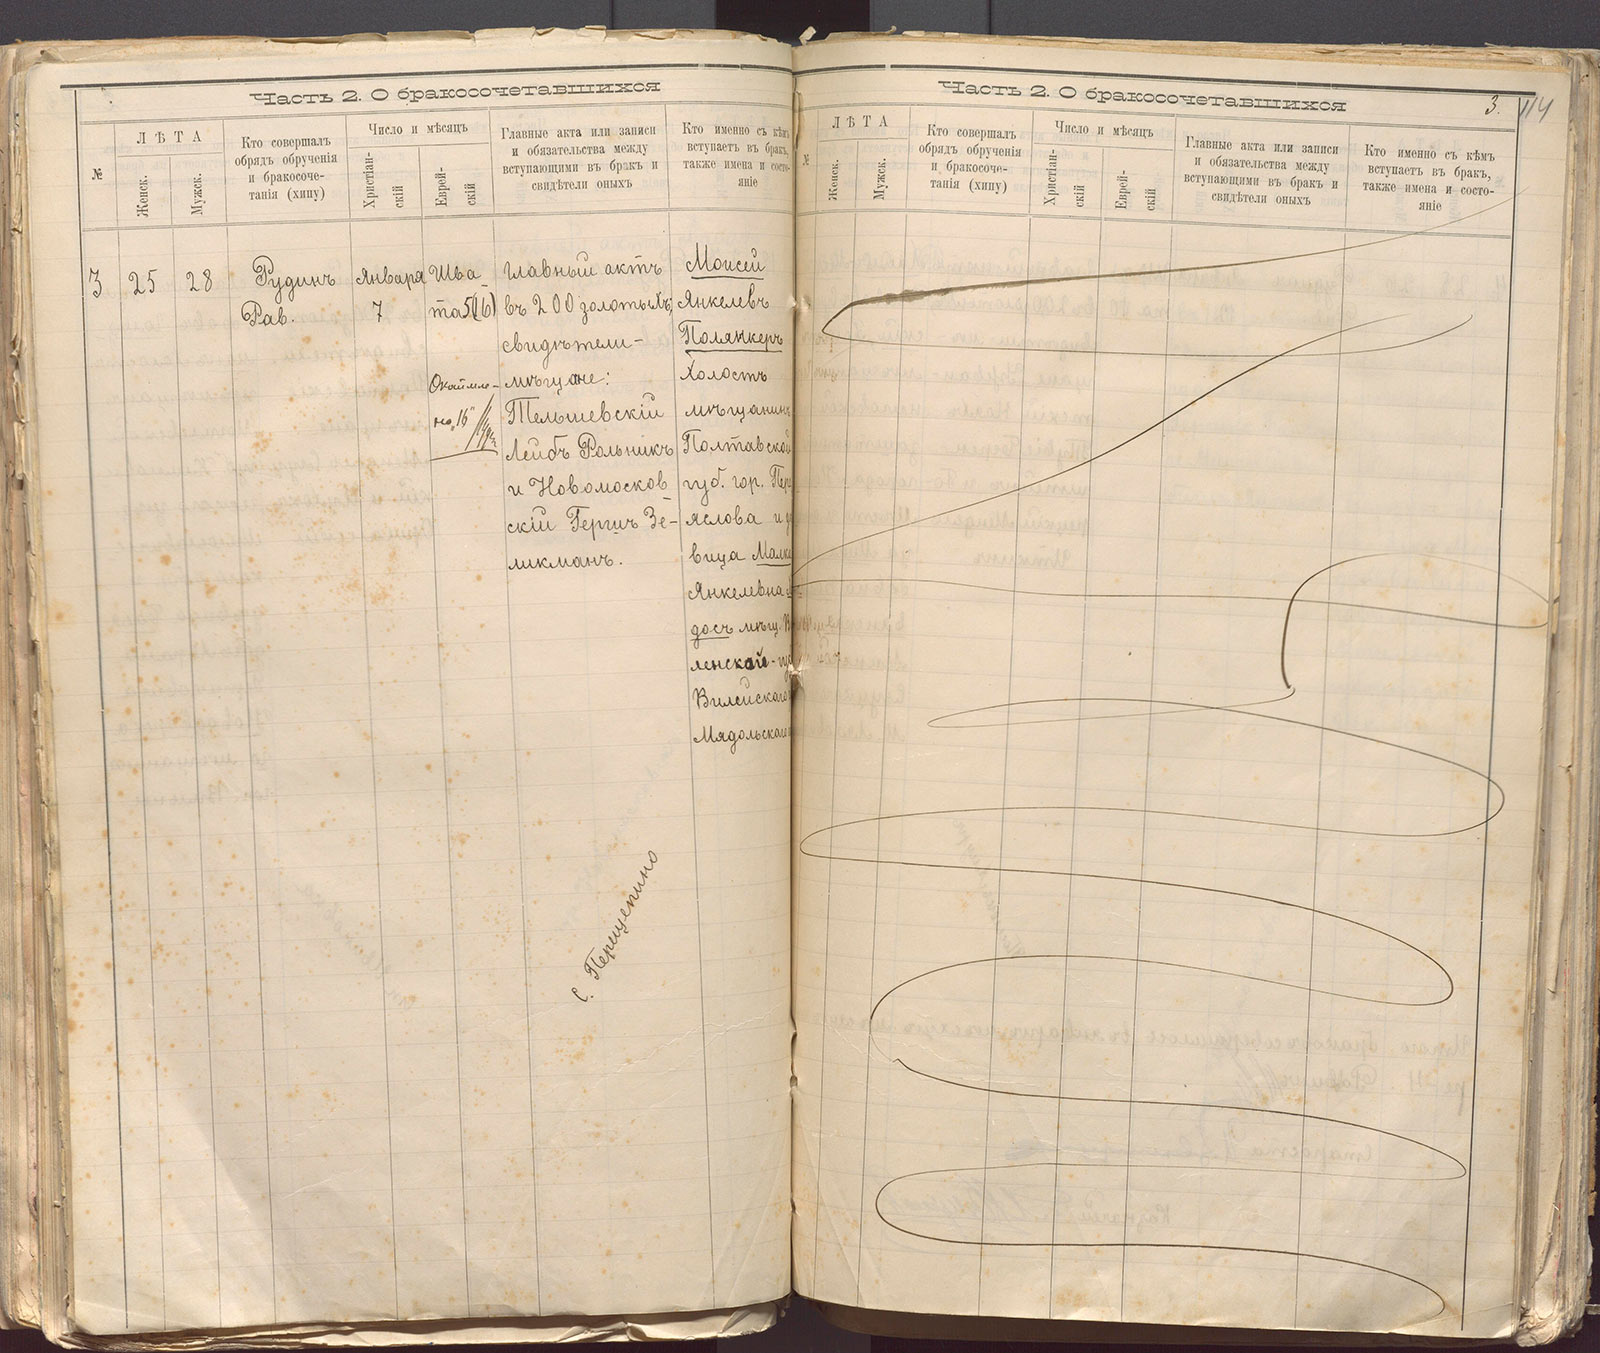 Часть 2. О бракосочетавшихся
№
ЛѢТА
Женск.
Мужск.
Кто совершалъ
обрядъ обрученія
и бракосоче-
танія (хипу)
Число и мѣсяцъ
Христіан-
скій
Еврей-
скій
Главные акта или записи
и обязательства между
вступающими въ бракъ и
свидѣтели оныхъ
Кто именно съ кѣмъ
вступаетъ въ бракъ,
также имена и состо-
яніе
3
25
28
Рудинъ
Рав.
Января
7
Шва-
та 5(16)
главный актъ
въ 200 золотыхъ,
свидѣтели-
мѣщане:
Тельшевскій
Лейбъ Рольникъ
и Новомосков-
скій Гершъ Зе-
ликманъ.
Моисей
Янкелевъ
Полянкеръ
Холостъ
мѣщанинъ
Полтавской
губ. гор. Пере
яслова и д
вица Малка
Янкелевна
досъ мѣщ. В
ленской-гу
Вилейскаго
Мядольскаго
с. Перещепино
Часть 2. О бракосочетавшихся
3.
114
№
ЛѢТА
Женск.
Мужск.
Кто совершалъ
обрядъ обрученія
и бракосоче-
танія (хипу)
Число и мѣсяцъ
Христіан-
скій
Еврей-
скій
Главные акта или записи
и обязательства между
вступающими въ бракъ и
свидѣтели оныхъ
Кто именно съ кѣмъ
вступаетъ въ бракъ,
также имена и состо-
яніе